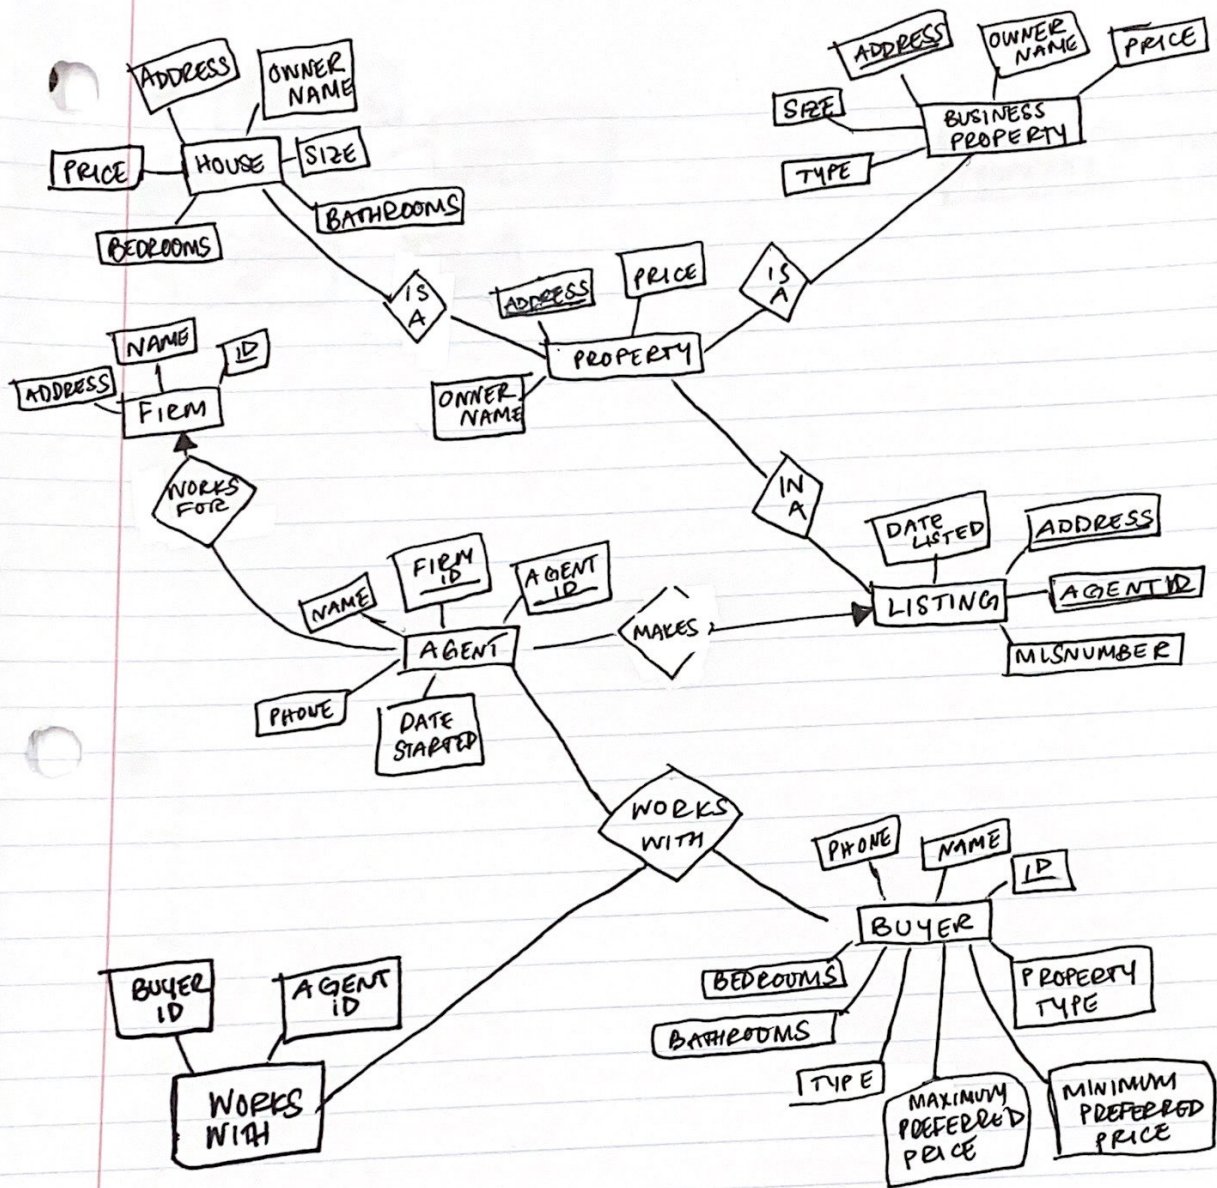 ADDRESS
OWNER
NAME
PRICE
HOUSE
SIZE
BEDROOMS
BATHROOMS
ADDRESS
OWNER
NAME
PRICE
SIZE
BUSINESS
PROPERTY
TYPE
IS
A
IS
A
ADDRESS
PRICE
PROPERTY
OWNER
NAME
NAME
ID
ADDRESS
FIRM
WORKS
FOR
IN
A
DATE
LISTED
ADDRESS
LISTING
AGENT ID
MLSNUMBER
NAME
FIRM
ID
AGENT
ID
AGENT
MAKES
PHONE
DATE
STARTED
WORKS
WITH
PHONE
NAME
ID
BUYER
BEDROOMS
BATHROOMS
TYPE
MAXIMUM
PREFERRED
PRICE
MINIMUM
PREFERRED
PRICE
PROPERTY
TYPE
BUYER
ID
AGENT
ID
WORKS
WITH